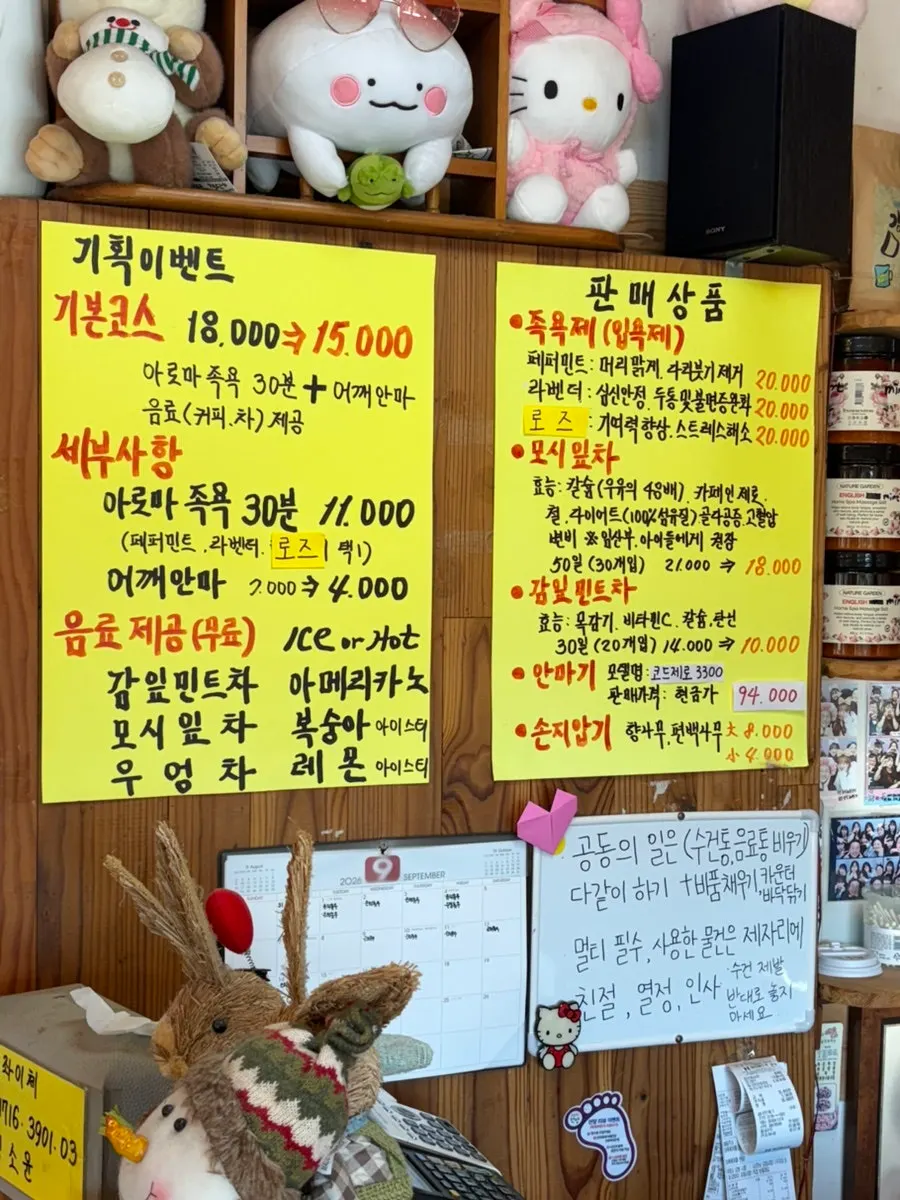 SONY
기획이벤트
기본코스 18,000⇒15.000
아롯마 족욕 30분 + 어깨안마
음료(커피.차) 제공
세부사항
아롯마 족욕 30분 11.000
(페퍼민트.라벤더. 로즈 택1)
어깨안마 7.000⇒4.000
음료 제공(무료) ICe or Hot
감잎민트차 아메리카노
모시잎차 복숭아 아이스티
우엉차 레몬 아이스티
판매상품
•족욕제 (입욕제)
페퍼민트: 머리맑게, 다리붓기제거 20.000
라벤더: 심신안정, 두통및불면증완화 20.000
로즈 : 기억력향상.스트레스해소 20.000
•모시잎차
효능: 칼슘(우유의 48배). 카페인 제로.
철.다이어트(100%섬유질)골다공증.고혈압
변비 ※임산부.아이들에게 권장
50일(30개입) 21.000 ⇒ 18.000
•감잎민트차
효능: 목감기. 비타민C. 칼슘.탄선
30일(20개입) 14.000 ⇒ 10.000
•안마기 모델명: 코드제로 3300
판매가격: 현금가 94.000
•손지압기 향사무,편백사무 大 8.000
小 4.000
2026 9 SEPTEMBER
공동의 일은 (수건통,음료통 비우기)
다같이 하기 + 비품채우기, 카운터
바닥닦기
멀티 필수, 사용한 물건은 제자리에
친절, 열정, 인사
수건 제발
반대로 놓지
마세요
NATURE GARDEN
ENGLISH
Home Spa Massage Gel
NATURE GARDEN
ENGLISH
Home Spa Massage Gel
좌이체
3901.03
소윤